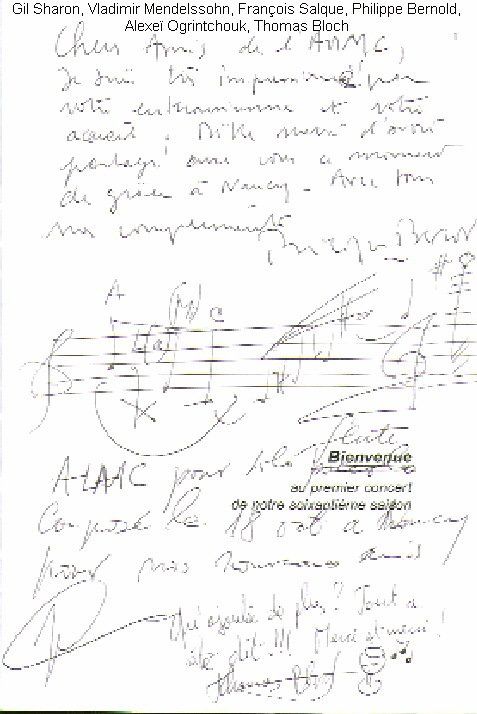 Gil Sharon, Vladimir Mendelssohn, François Salque, Philippe Bernold,
Alexeï Ogrintchouk, Thomas Bloch
Chers Amis de l'AMC,
Je suis très impressionné par
votre enthousiasme et votre
accueil. Mille merci d'avoir
partagé avec vous ce moment
de grâce à Nancy. Avec tous
mes compliments
A
C
flûte
Bienvenue
pour
au premier concert
de notre soixantième saison
Composé le 18 oct à Nancy
pour nos nouveaux amis
Qu'ajouter de plus? Tout a
été dit!!! Merci et merci!
Thomas Bloch